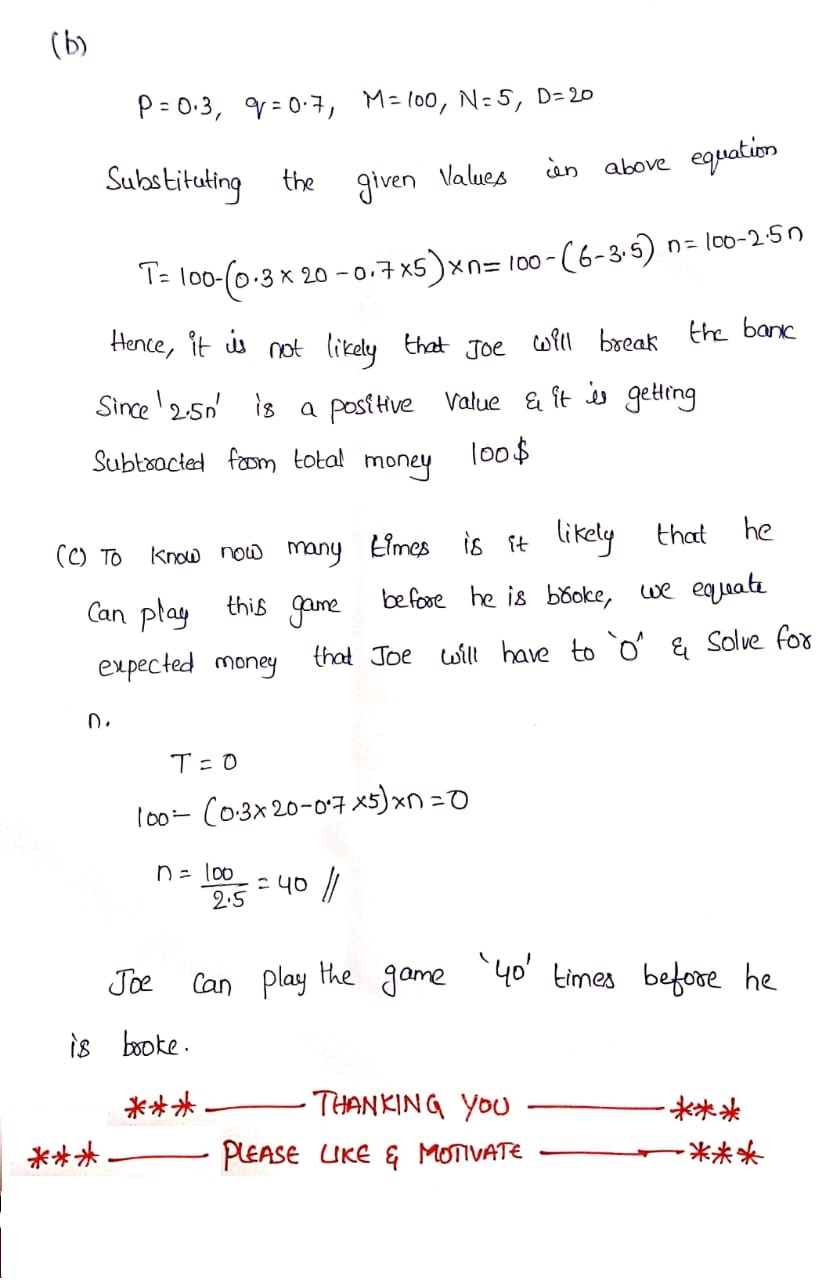 (b)
P = 0.3, q = 0.7, M = 100, N = 5, D = 20
Substituting the given Values in above equation
T = 100-(0.3 × 20 - 0.7 × 5) × n = 100 - (6 - 3.5) n = 100 - 2.5n
Hence, it is not likely that Joe will break the bank
Since '2.5n' is a positive value & it is getting
Subtracted from total money 100$
(C) To know now many times is it likely that he
Can play this game before he is broke, we equate
expected money that Joe will have to '0' & Solve for
n.
T = 0
100 - (0.3 × 20 - 0.7 × 5) × n = 0
n = 100/2.5 = 40 //
Joe Can play the game '40' times before he
is brooke.
*** ——— THANKING YOU ——— ***
*** ——— PLEASE LIKE & MOTIVATE ——— ***